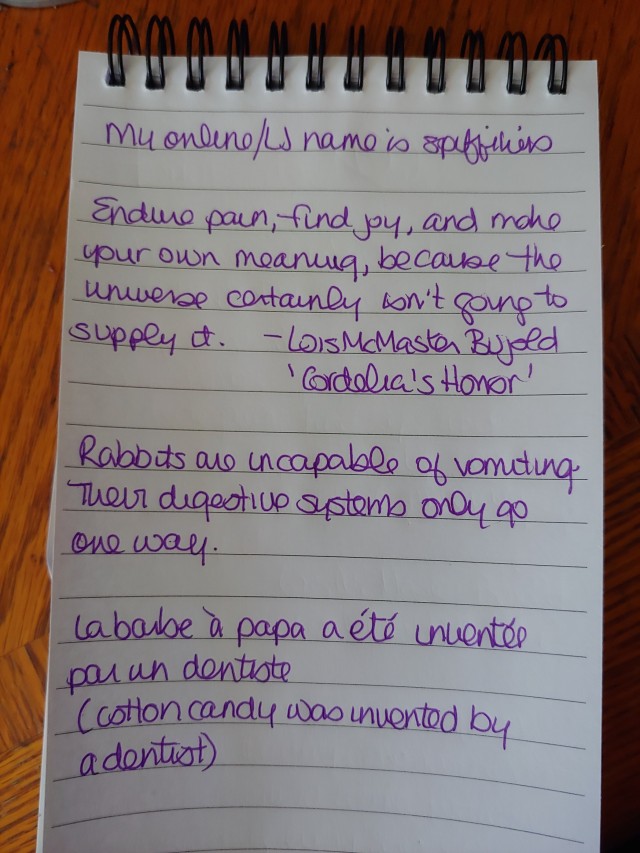 My online/LJ name is spiffikins
Endure pain, find joy, and make
your own meaning, because the
universe certainly isn't going to
supply it. - Lois McMaster Bujold
'Cordelia's Honor'
Rabbits are incapable of vomiting.
Their digestive systems only go
one way.
La barbe à papa a été inventée
par un dentiste
(cotton candy was invented by
a dentist)